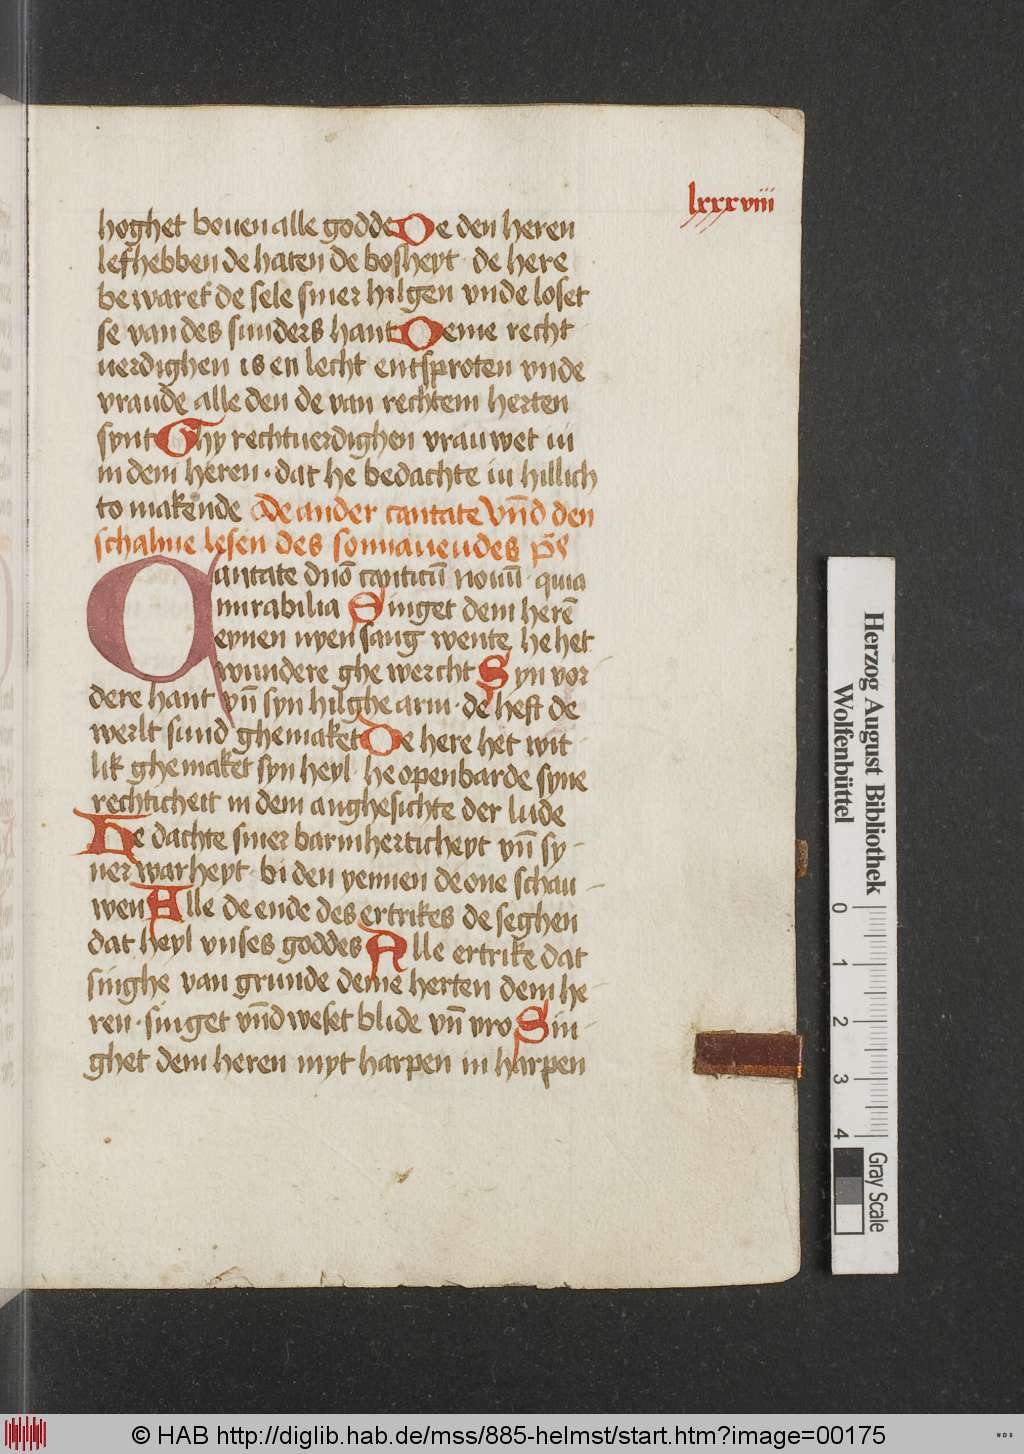 lxxxviii
hoghet bouen alle godde De den heren
lefhebben de haten de bosheyt · de here
bewaret de sele siner hilgen vnde loset
se van des sunders hant Deme recht
uerdighen is en lecht entsproten vnde
vraude alle den de van rechtem herten
synt Ghy rechtuerdighen vrauwet iu
in dem heren · dat he bedachte iu hillich
to makende De ander cantate vn̄d den
schalme lesen des sonnauendes p̄s
Cantate dn̄o canticū nouū · quia
mirabilia Singet dem herē
eynen nyen sang wente he het
wundere ghewercht Syn vor-
dere hant vn̄ syn hilghe arm · de heft de
werlt sund ghemaket De here het wit-
lik ghemaket syn heyl · he openbarde syne
rechticheit in dem anghesichte der lude
He dachte siner barmherticheyt vn̄ sy-
ner warheyt · bi den yennen de one schau-
wen Alle de ende des ertrikes de seghen
dat heyl vnses goddes Alle ertrike dat
singhe van grunde deme herten dem he-
ren · singet vn̄d weset blide vn̄ vro Sin-
ghet dem heren myt harpen in harpen
Herzog August Bibliothek
Wolfenbüttel
0 1 2 3 4
Gray Scale
© HAB http://diglib.hab.de/mss/885-helmst/start.htm?image=00175